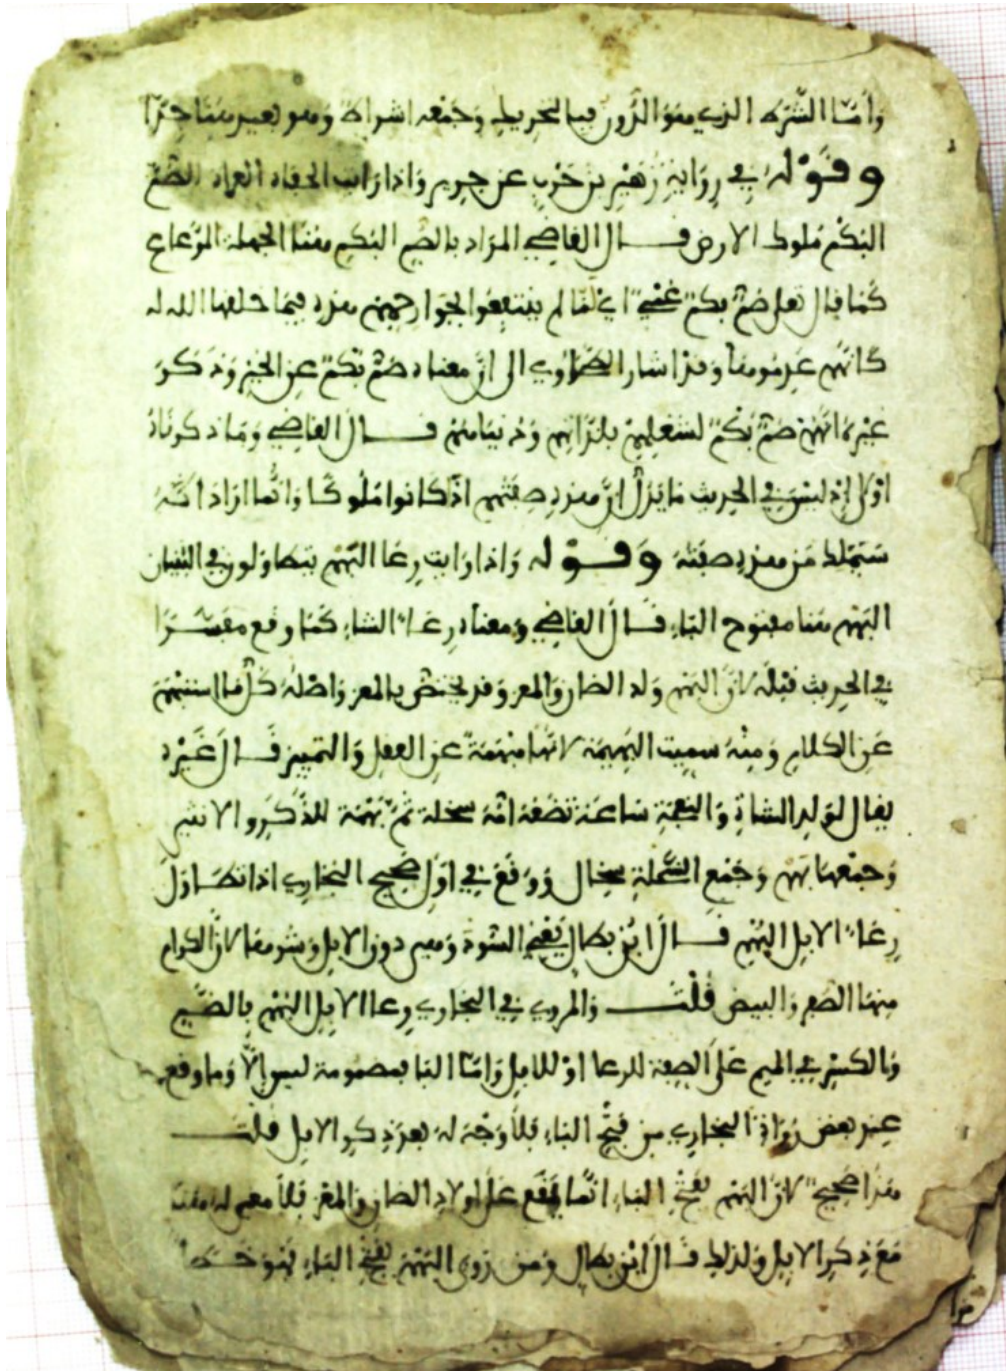 وَأمّا الشَّرَط الذي هو الدُّون فبالتحريك وَجَمْعه اشراط وهو بعيد هنا جِدّا
وقَوْله في رِوَاية زُهَيْر بن حَرْب عن جرير وَاذا رَايت الحفاة العراة الصُّمّ
البُكْمَ مُلوك الارض قال القاضي المرَاد بالصم البُكم هُنا الجهلة الرَّعاع
كَما قال تعلى صُمٌّ بكمٌ عُمْيٌ اي لَمّا لم ينتفعوا بجوارحهم هذه فيما خلقها الله له
كَأنهم عَدِمُوهَا وَقد اشار الطَّحَاوي الى انَّ معناه صمٌّ بُكْمٌ عن الخير وَذكَرَ
غيْره انَّهُمْ صُمٌّ بُكْمٌ لشغلهمْ بلذّاتهم وَدُنياهُمْ قال القاضي وَمَا ذكرنَاهُ
اوْلى إذ ليْسَ في الحديث مَا يَدُلُّ انَّ هذه صِفَتُهم اذ كَانوا مُلُوكًا وَانّما ارَادَ انّهُ
سَيَمْلك مَن هذه صفَتهُ وقوْله وَاذا رَايت رِعَا البَهْم يتطاوَلون في البُنيان
البَهْم هُنا مفتوح البَاء قال القاضي وَمعناه رِعَاءُ الشاء كَما وقع مفَسَّرًا
في الحديث قبْلَهُ لانَّ البَهْم وَلد الضان وَالمعز وَقد يختصُّ بالمعز وَاصْلهُ كُلُّ ما استبْهَمَ
عَن الكلام وَمِنْهُ سميت البَهِيمَة لانها مبْهَمَةٌ عن العقل وَالتمييز قال غَيْره
يقال لوَلد الشاة وَالنعجة سَاعَة تَضَعُهُ امُّهُ سخلة ثمَّ بَهْمَة للذَّكَر والانثى
وَجمْعهَا بَهْمٌ وَجَمْع السَّخلة سِخال وَوَقَعَ في اوَّل صَحيح البُخاري اذا تطَاوَلَ
رِعَاءُ الابل البُهْم قال ابْن بطال يَعْني السُّودَ وَهي دون الابل وَشرّها لانَّ الكرام
مِنهَا الصُّفر وَالبيض قُلْت وَالمروي في البخاري رِعا الابل البُهْمُ بالضَّم
وَالكسْرِ في الميم عَلى الصفة للرعا اوْ للابل وَامّا البا فمضمومة ليس إلا وَما وقع
عند بعض رُوَاة البُخاري من فَتْح البَاء فلاَ وَجْهَ لهُ بعد ذِكر الابل قُلْت
هَذا صَحِيحٌ لانَّ البَهْم بفَتْح البَاء انَّما يَقَع على اولاد الضان وَالمعْز فلا معنى له هُنا
مَعَ ذِكر الابل وَلذلك قال ابْن بطال وَمن رَوى البَهْم بفَتْح البَاء فهُو خَطَاٌ
هذا